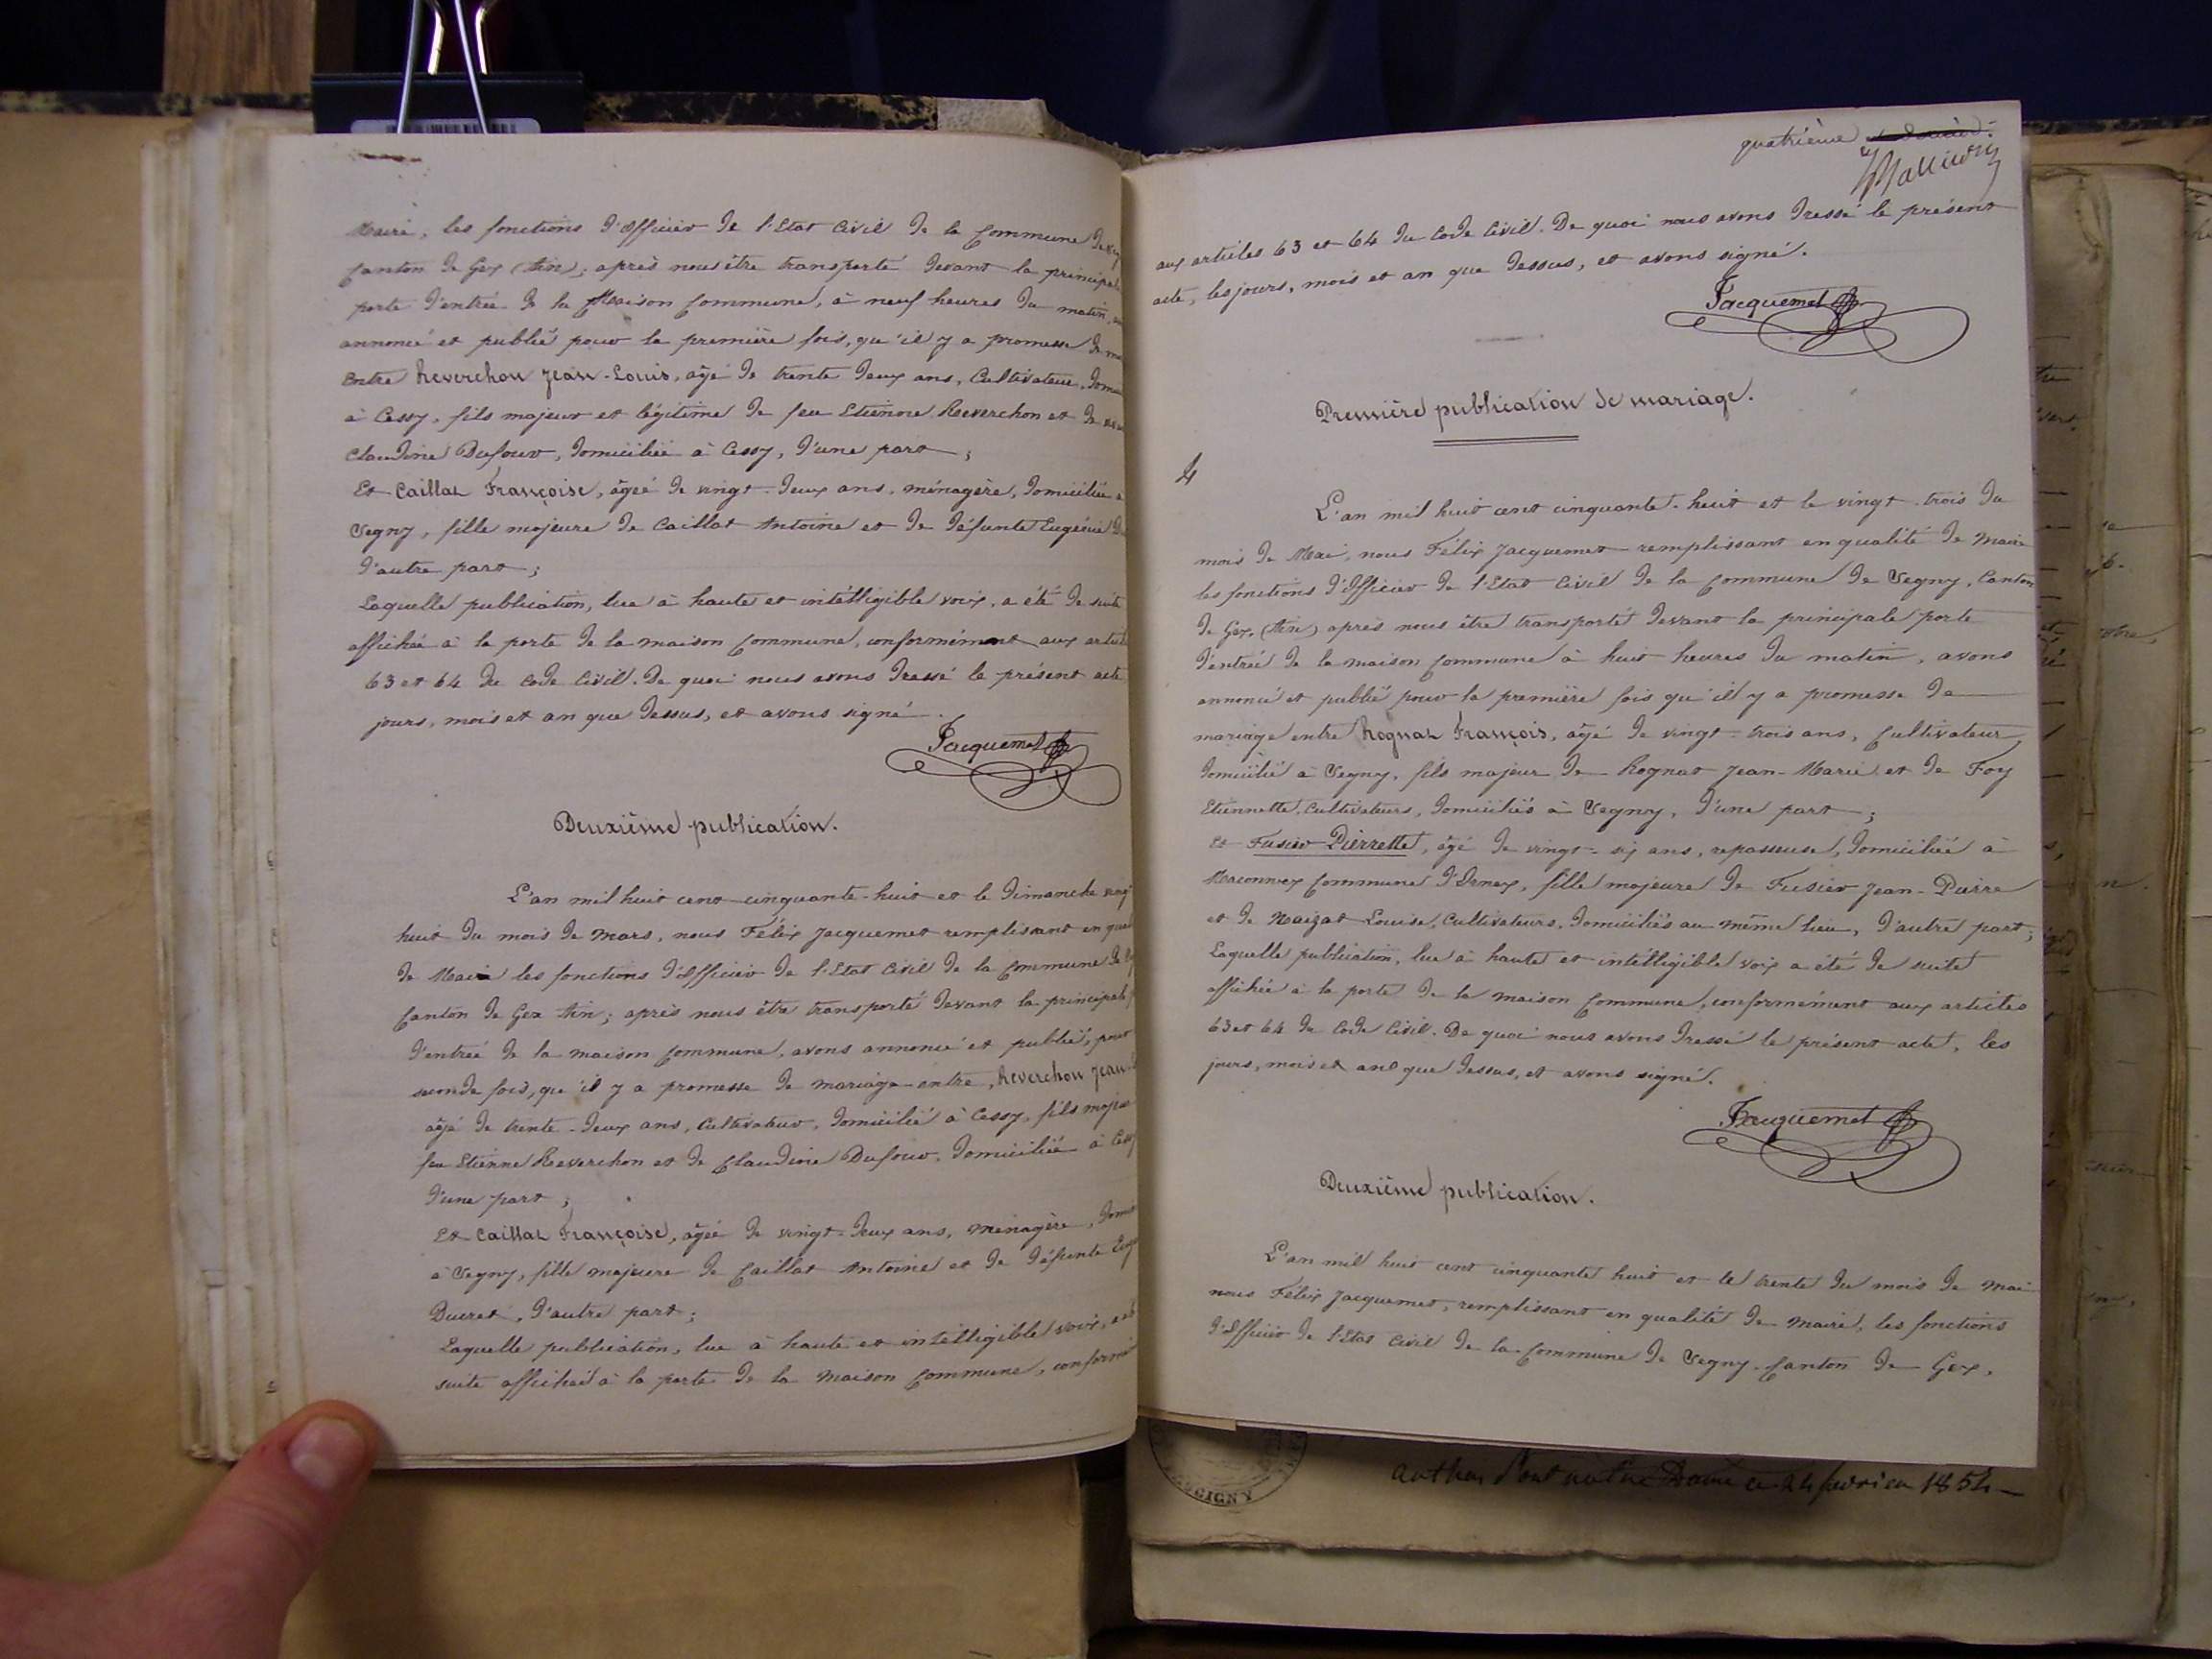 Maire, les fonctions d'Officier de l'Etat Civil de la Commune de
Canton de Gex (Ain); après nous être transporté devant la principale
porte d'entrée de la Maison Commune, à neuf heures du matin,
annoncé et publié pour la première fois, qu'il y a promesse de
Entre Reverchon Jean-Louis, âgé de trente deux ans, Cultivateur,
à Cessy, fils majeur et légitime de feu Etienne Reverchon et de
Claudine Dufour, domiciliée à Cessy, d'une part;
Et Caillat Françoise, âgée de vingt-deux ans, ménagère, domiciliée à
Segny, fille majeure de Caillat Antoine et de défunte Eugénie
d'autre part;
Laquelle publication, lue à haute et intélligible voix, a été de suite
affichée à la porte de la maison Commune, conformément aux
63 et 64 du Code Civil. De quoi nous avons dressé le présent acte
jours, mois et an que dessus, et avons signé.
Jacquemet
Deuxième publication.
L'an mil huit cent cinquante-huit et le dimanche vingt
huit du mois de Mars, nous Félix Jacquemet remplissant en
de Maire les fonctions d'Officier de l'Etat Civil de la Commune de
Canton de Gex Ain; après nous être transporté devant la principale
d'entrée de la maison Commune, avons annoncé et publié, pour
seconde fois, qu'il y a promesse de mariage entre, Reverchon Jean
âgé de trente-deux ans, Cultivateur, domicilié à Cessy, fils
feu Etienne Reverchon et de Claudine Dufour, domiciliée à
d'une part;
Et Caillat Françoise, âgée de vingt-deux ans, ménagère,
à Segny, fille majeure de Caillat Antoine et de défunte
Ducret, d'autre part;
Laquelle publication, lue à haute et intelligible voix,
suite affichée à la porte de la Maison Commune,
quatrième
aux articles 63 et 64 du Code Civil. De quoi nous avons dressé le présent
acte, les jours, mois et an que dessus, et avons signé.
Jacquemet
Première publication de mariage.
4
L'an mil huit cent cinquante-huit et le vingt-trois du
mois de Mai, nous Félix Jacquemet remplissant en qualité de Maire
les fonctions d'Officier de l'Etat Civil de la Commune de Segny, Canton
de Gex, (Ain) après nous être transporté devant la principale porte
d'entrée de la maison Commune à huit heures du matin, avons
annoncé et publié pour la première fois qu'il y a promesse de
mariage entre Rognat François, âgé de vingt-trois ans, Cultivateur,
domicilié à Segny, fils majeur de Rognat Jean-Marie et de Foy
Etiennette, Cultivateurs, domiciliés à Segny, d'une part;
Et Fusier Pierrette, âgé de vingt-six ans, repasseuse, domiciliée à
Maconnex Commune d'Ornex, fille majeure de Fusier Jean-Pierre
et de Louise, Cultivateurs, domiciliés au même lieu, d'autre part;
Laquelle publication, lue à haute et intélligible voix a été de suite
affichée à la porte de la Maison Commune, conformément aux articles
63 et 64 du Code Civil. De quoi nous avons dressé le présent acte, les
jours, mois et an que dessus, et avons signé.
Jacquemet
Deuxième publication.
L'an mil huit cent cinquante huit et le trente du mois de Mai
nous Félix Jacquemet, remplissant en qualité de Maire, les fonctions
d'Officier de l'Etat Civil de la Commune de Segny, Canton de Gex,
ce 24 février 1854